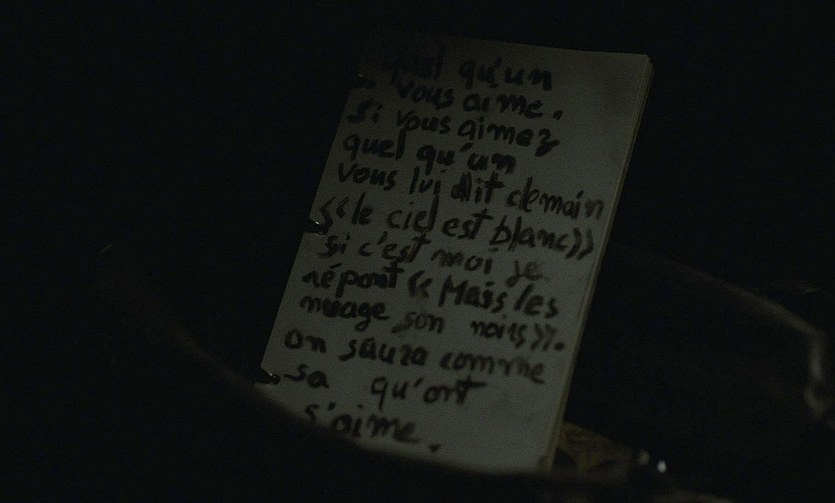 quel qu'un
vous aime.
si vous aimez
quel qu'un
vous lui dit demain
«le ciel est blanc»
si c'est moi je
répont « Mais les
nuage son noirs».
on saura comme
sa qu'ont
s'aime.